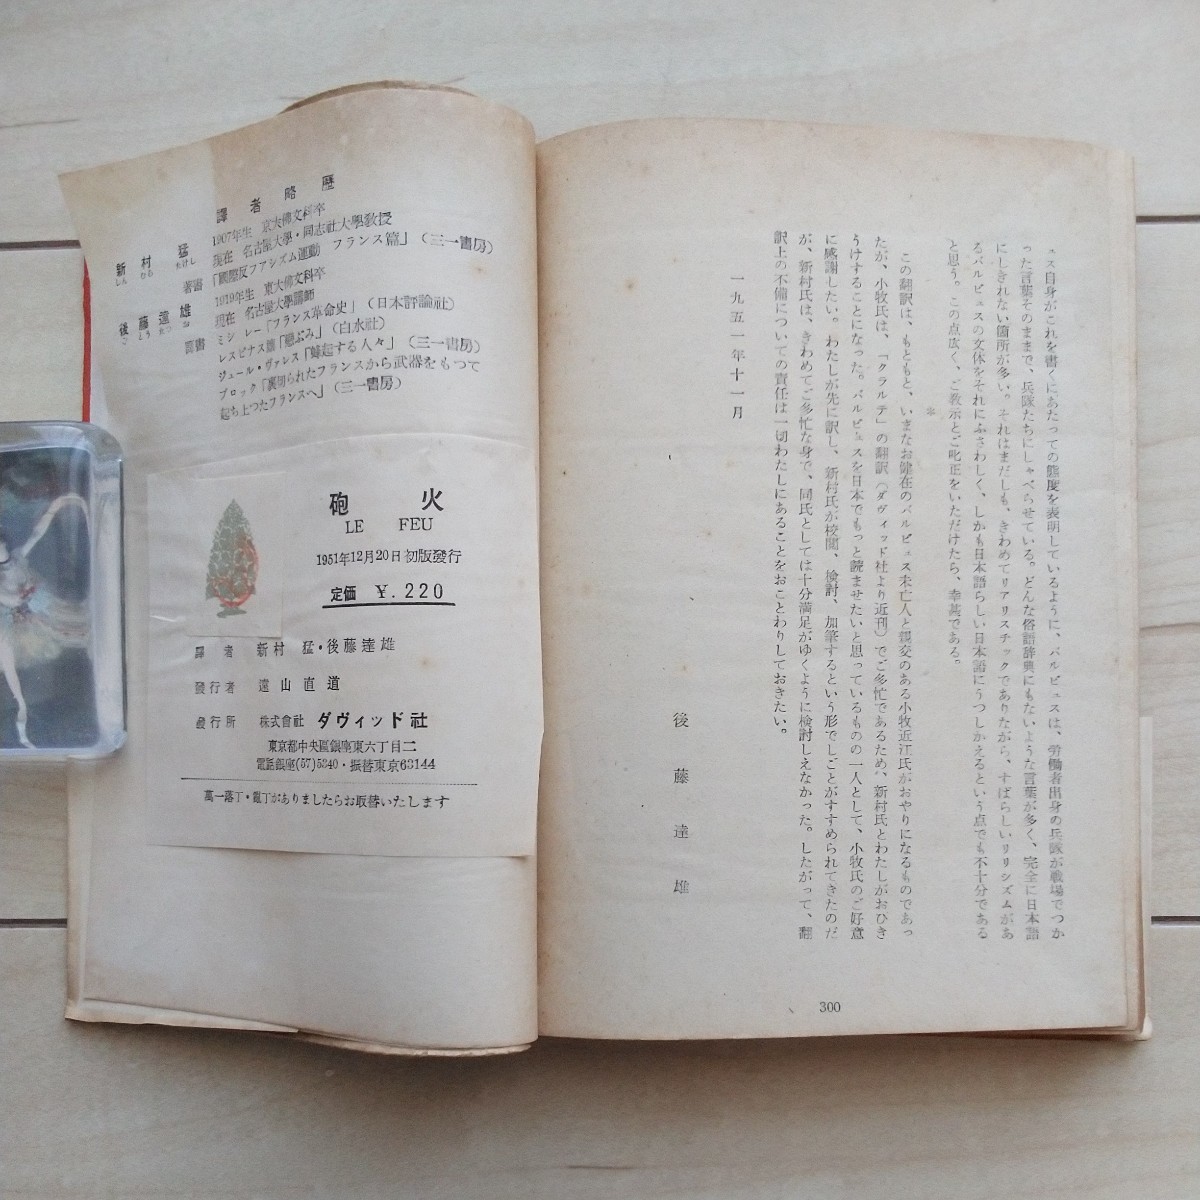 ュス自身がこれを書くにあたっての態度を表明しているように、バルビュスは、労働者出身の兵隊が戦場でつか
った言葉そのままで、兵隊たちにしゃべらせている。どんな俗語辞典にもないような言葉が多く、完全に日本語
にしきれない箇所が多い。それはまだしも、きわめてリアリスチックでありながら、すばらしいリリシズムがあ
るバルビュスの文体をそれにふさわしく、しかも日本語らしい日本語にうつしかえるという点でも不十分である
と思う。この点広く、ご教示とご叱正をいただけたら、幸甚である。
*
この翻訳は、もともと、いまなお健在のバルビュス未亡人と親交のある小牧近江氏がおやりになるものであっ
たが、小牧氏は、「クラルテ」の翻訳(ダヴィッド社より近刊)でご多忙であるため、新村氏とわたしがおひき
うけすることになった。バルビュスを日本でもっと読ませたいと思っているものの一人として、小牧氏のご好意
に感謝したい。わたしが先に訳し、新村氏が校閲、検討、加筆するという形でしごとがすすめられてきたのだ
が、新村氏は、きわめてご多忙な身で、同氏としては十分満足がゆくように検討しえなかった。したがって、翻
訳上の不備についての責任は一切わたしにあることをおことわりしておきたい。
一九五一年十一月
後藤達雄
300
譯者略歷
新村猛
しんむらたけし
1907年生 京大佛文科卒
現在 名古屋大學・同志社大學教授
著書「國際反ファシズム運動 フランス篇」(三一書房)
後藤達雄
ごとうたつお
1919年生 東大佛文科卒
現在 名古屋大學講師
譯書 ミシュレー「フランス革命史」(日本評論社)
レスピナス孃「戀ぶみ」(白水社)
ジュール・ヴァレス「蜂起する人々」(三一書房)
ブロック「裏切られたフランスから武器をもつて
起ち上つたフランスへ」(三一書房)
砲火
LE FEU
1951年12月20日初版發行
定価 ¥.220
譯者 新村 猛・後藤達雄
發行者 遠山直道
發行所 株式會社 ダヴィッド社
東京都中央區銀座東六丁目二
電話銀座(57)5340・振替東京63144
萬一落丁・亂丁がありましたらお取替いたします